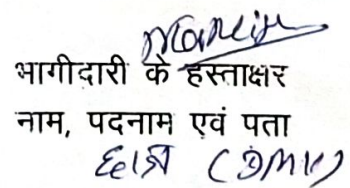 भागीदारी के हस्ताक्षर
नाम, पदनाम एवं पता
छात्र (DMV)